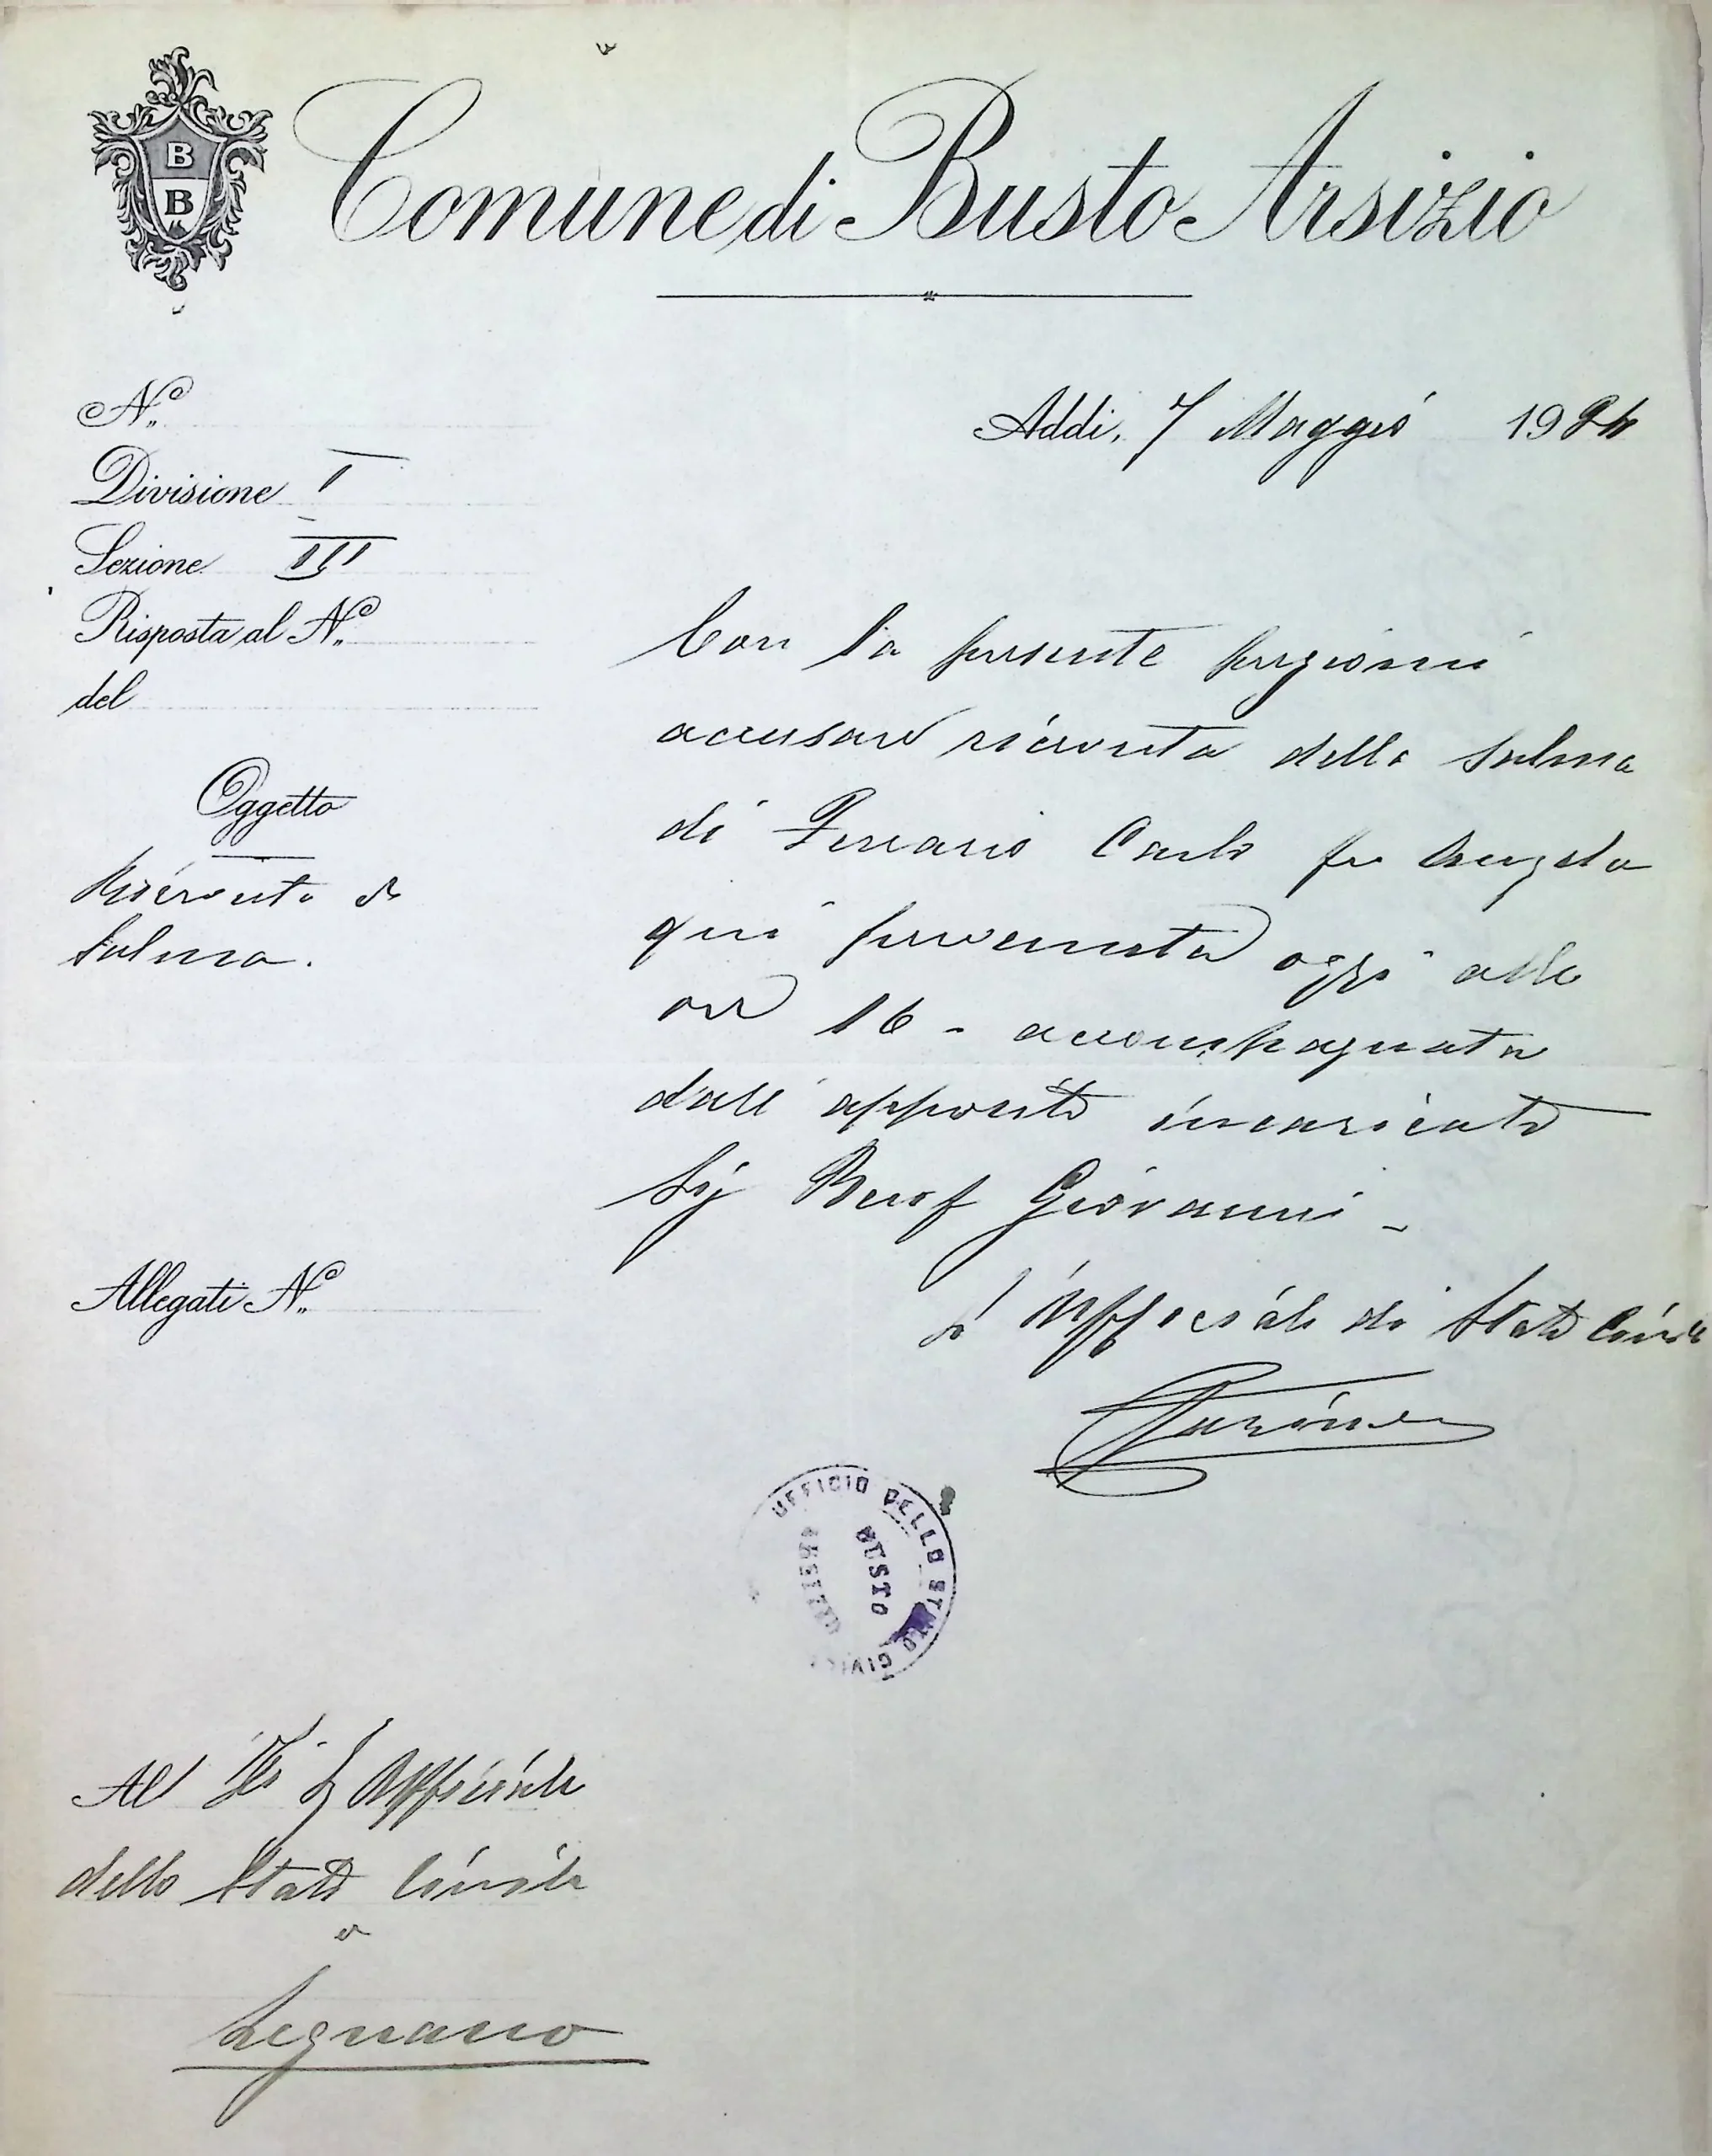 B
B
Comune di Busto Arsizio
N.º
Addi, 7 Maggio 1924
Divisione I
Sezione III
Risposta al N.º
del
Oggetto
Ricevuta di
Salma.
Con la presente pregiomi
accusare ricevuta della salma
di Ferrario Carlo fu Angelo
qui pervenuta oggi alle
ore 16 - accompagnata
dall'apposito incaricato
Sig Giovanni -
Allegati N.º
L'Ufficiale di Stato Civile
UFFICIO DELLO STATO CIVILE
BUSTO
ARSIZIO
Al Ufficiale
dello Stato Civile
a
Legnano